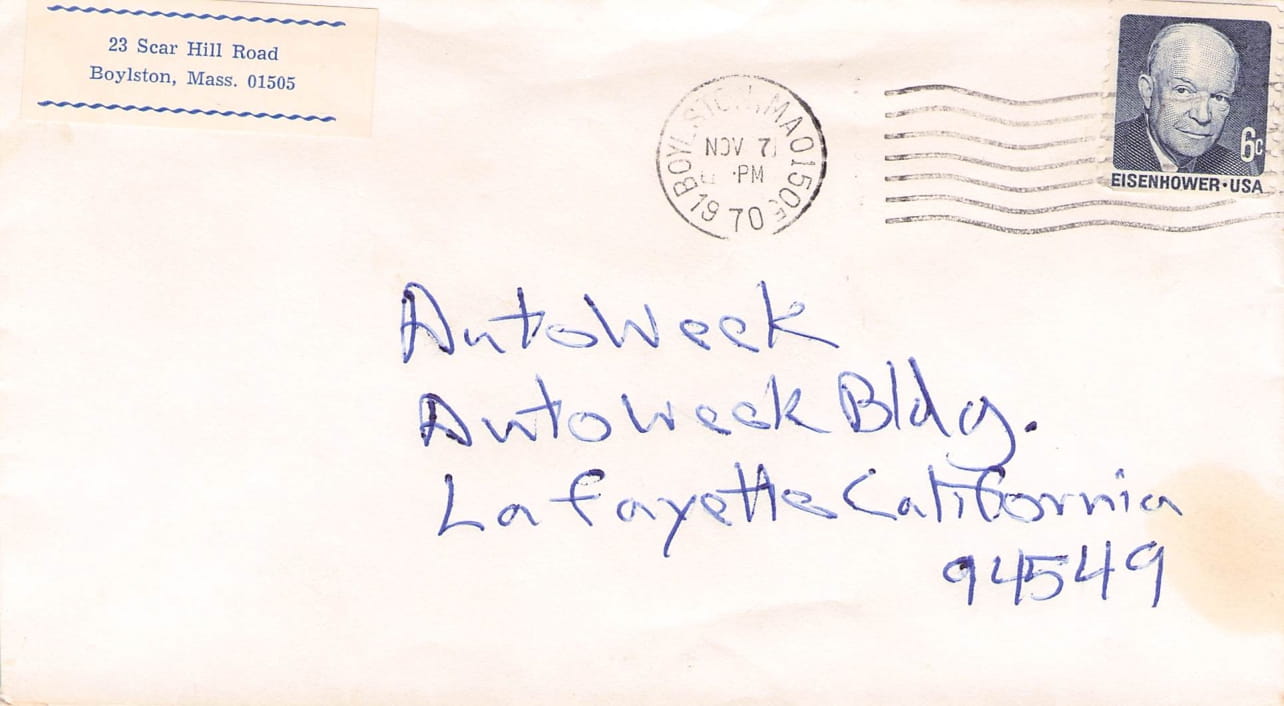 23 Scar Hill Road
Boylston, Mass. 01505
BOYLSTON, MA 01505
NOV 7
PM
19 70
6c
EISENHOWER·USA
AutoWeek
AutoWeek Bldg.
Lafayette California
94549